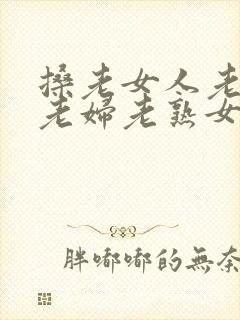 搡老女人老
老婦老熟女
胖嘟嘟的無奈